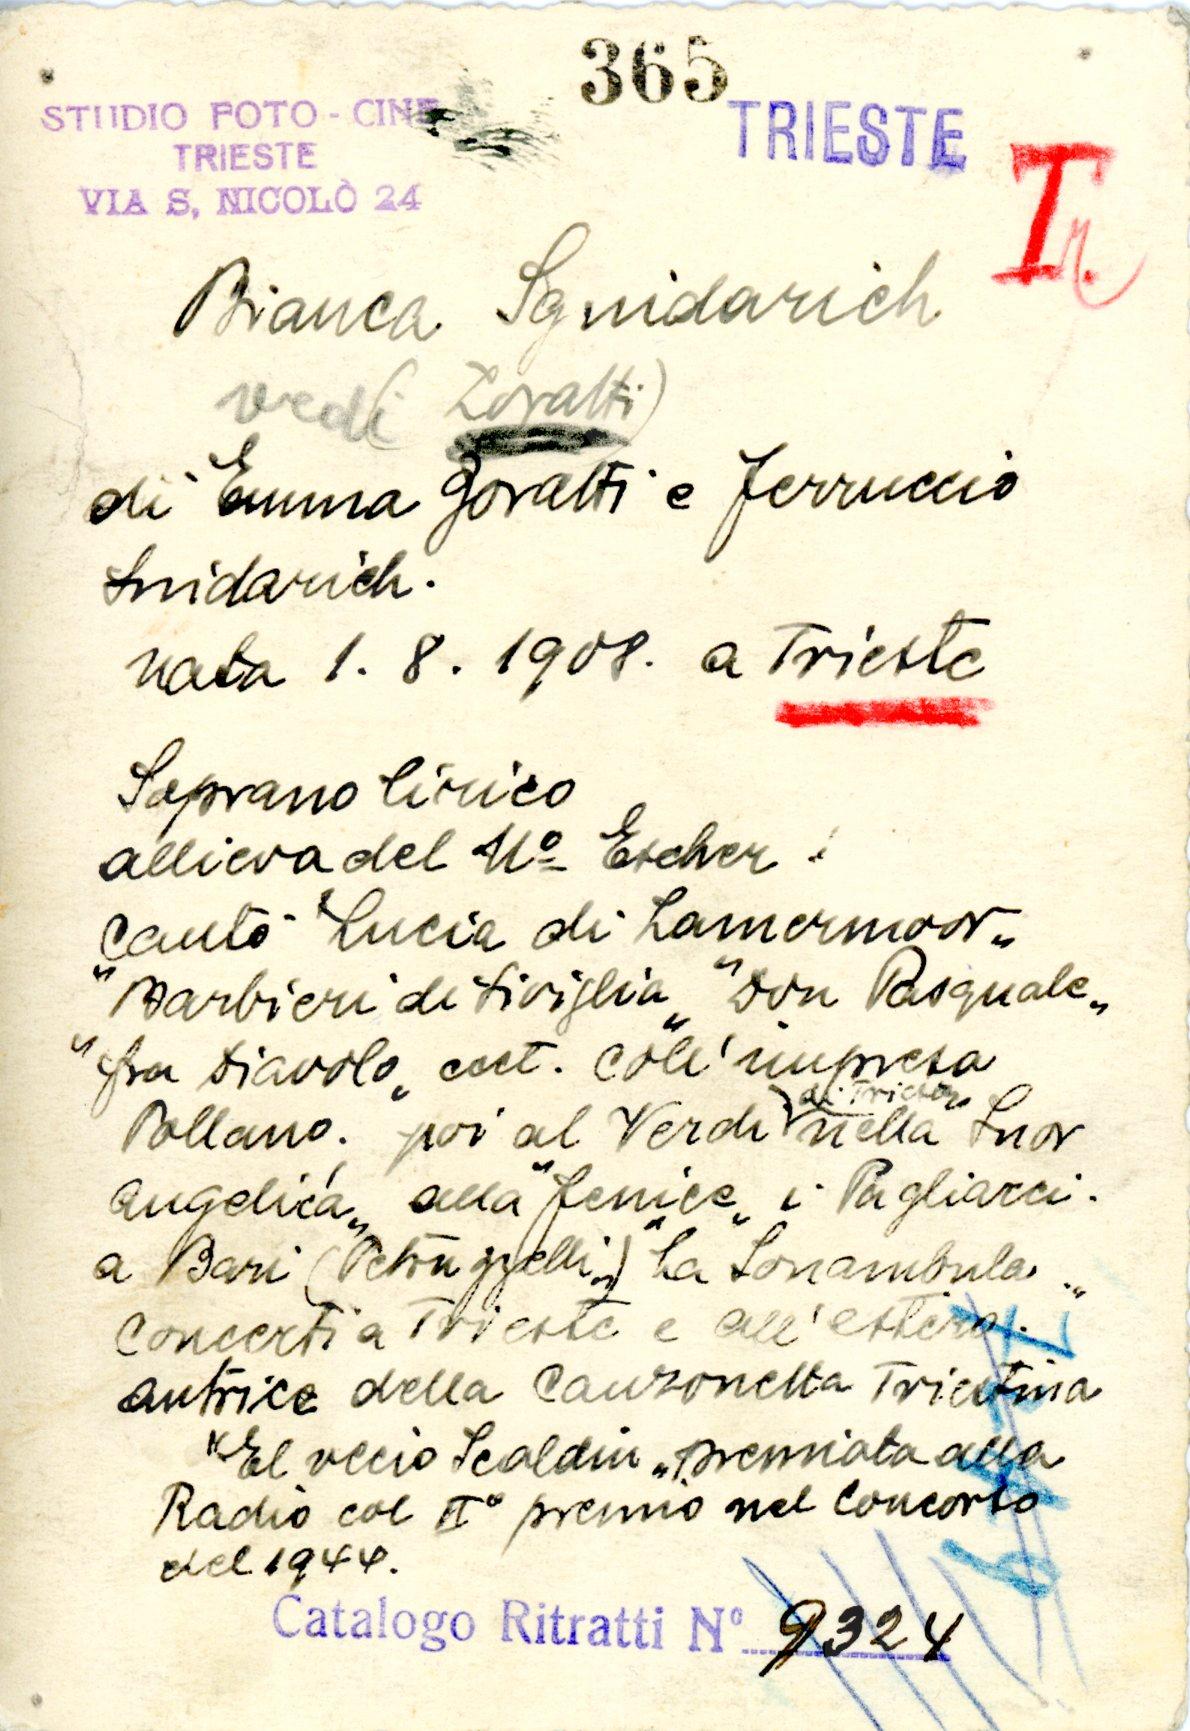 365
STUDIO FOTO - CINE
TRIESTE
VIA S. NICOLÒ 24
TRIESTE
Tr.
Bianca Sgnidarich
vedi (Zoratti)
di Emma Zoratti e Ferruccio
Snidarich.
nata 1. 8. 1908. a Trieste
Soprano lirico
allieva del Mº Escher :
Cantò "Lucia di Lamermoor„
"Barbieri di Siviglia„ "Don Pasquale„
"fra Diavolo„ ect. coll'impresa
Bollano. poi al Verdi di Trieste nella Suor
Angelica„ alla "Fenice„ i Pagliacci.
a Bari (Petruzzelli„) "La Sonambula„
Concerti a Trieste e all'estero.
autrice della Canzonetta Triestina
"El vecio Scaldin„ premiata alla
Radio col IIº premio nel Concorso
del 1944.
Catalogo Ritratti Nº 9324